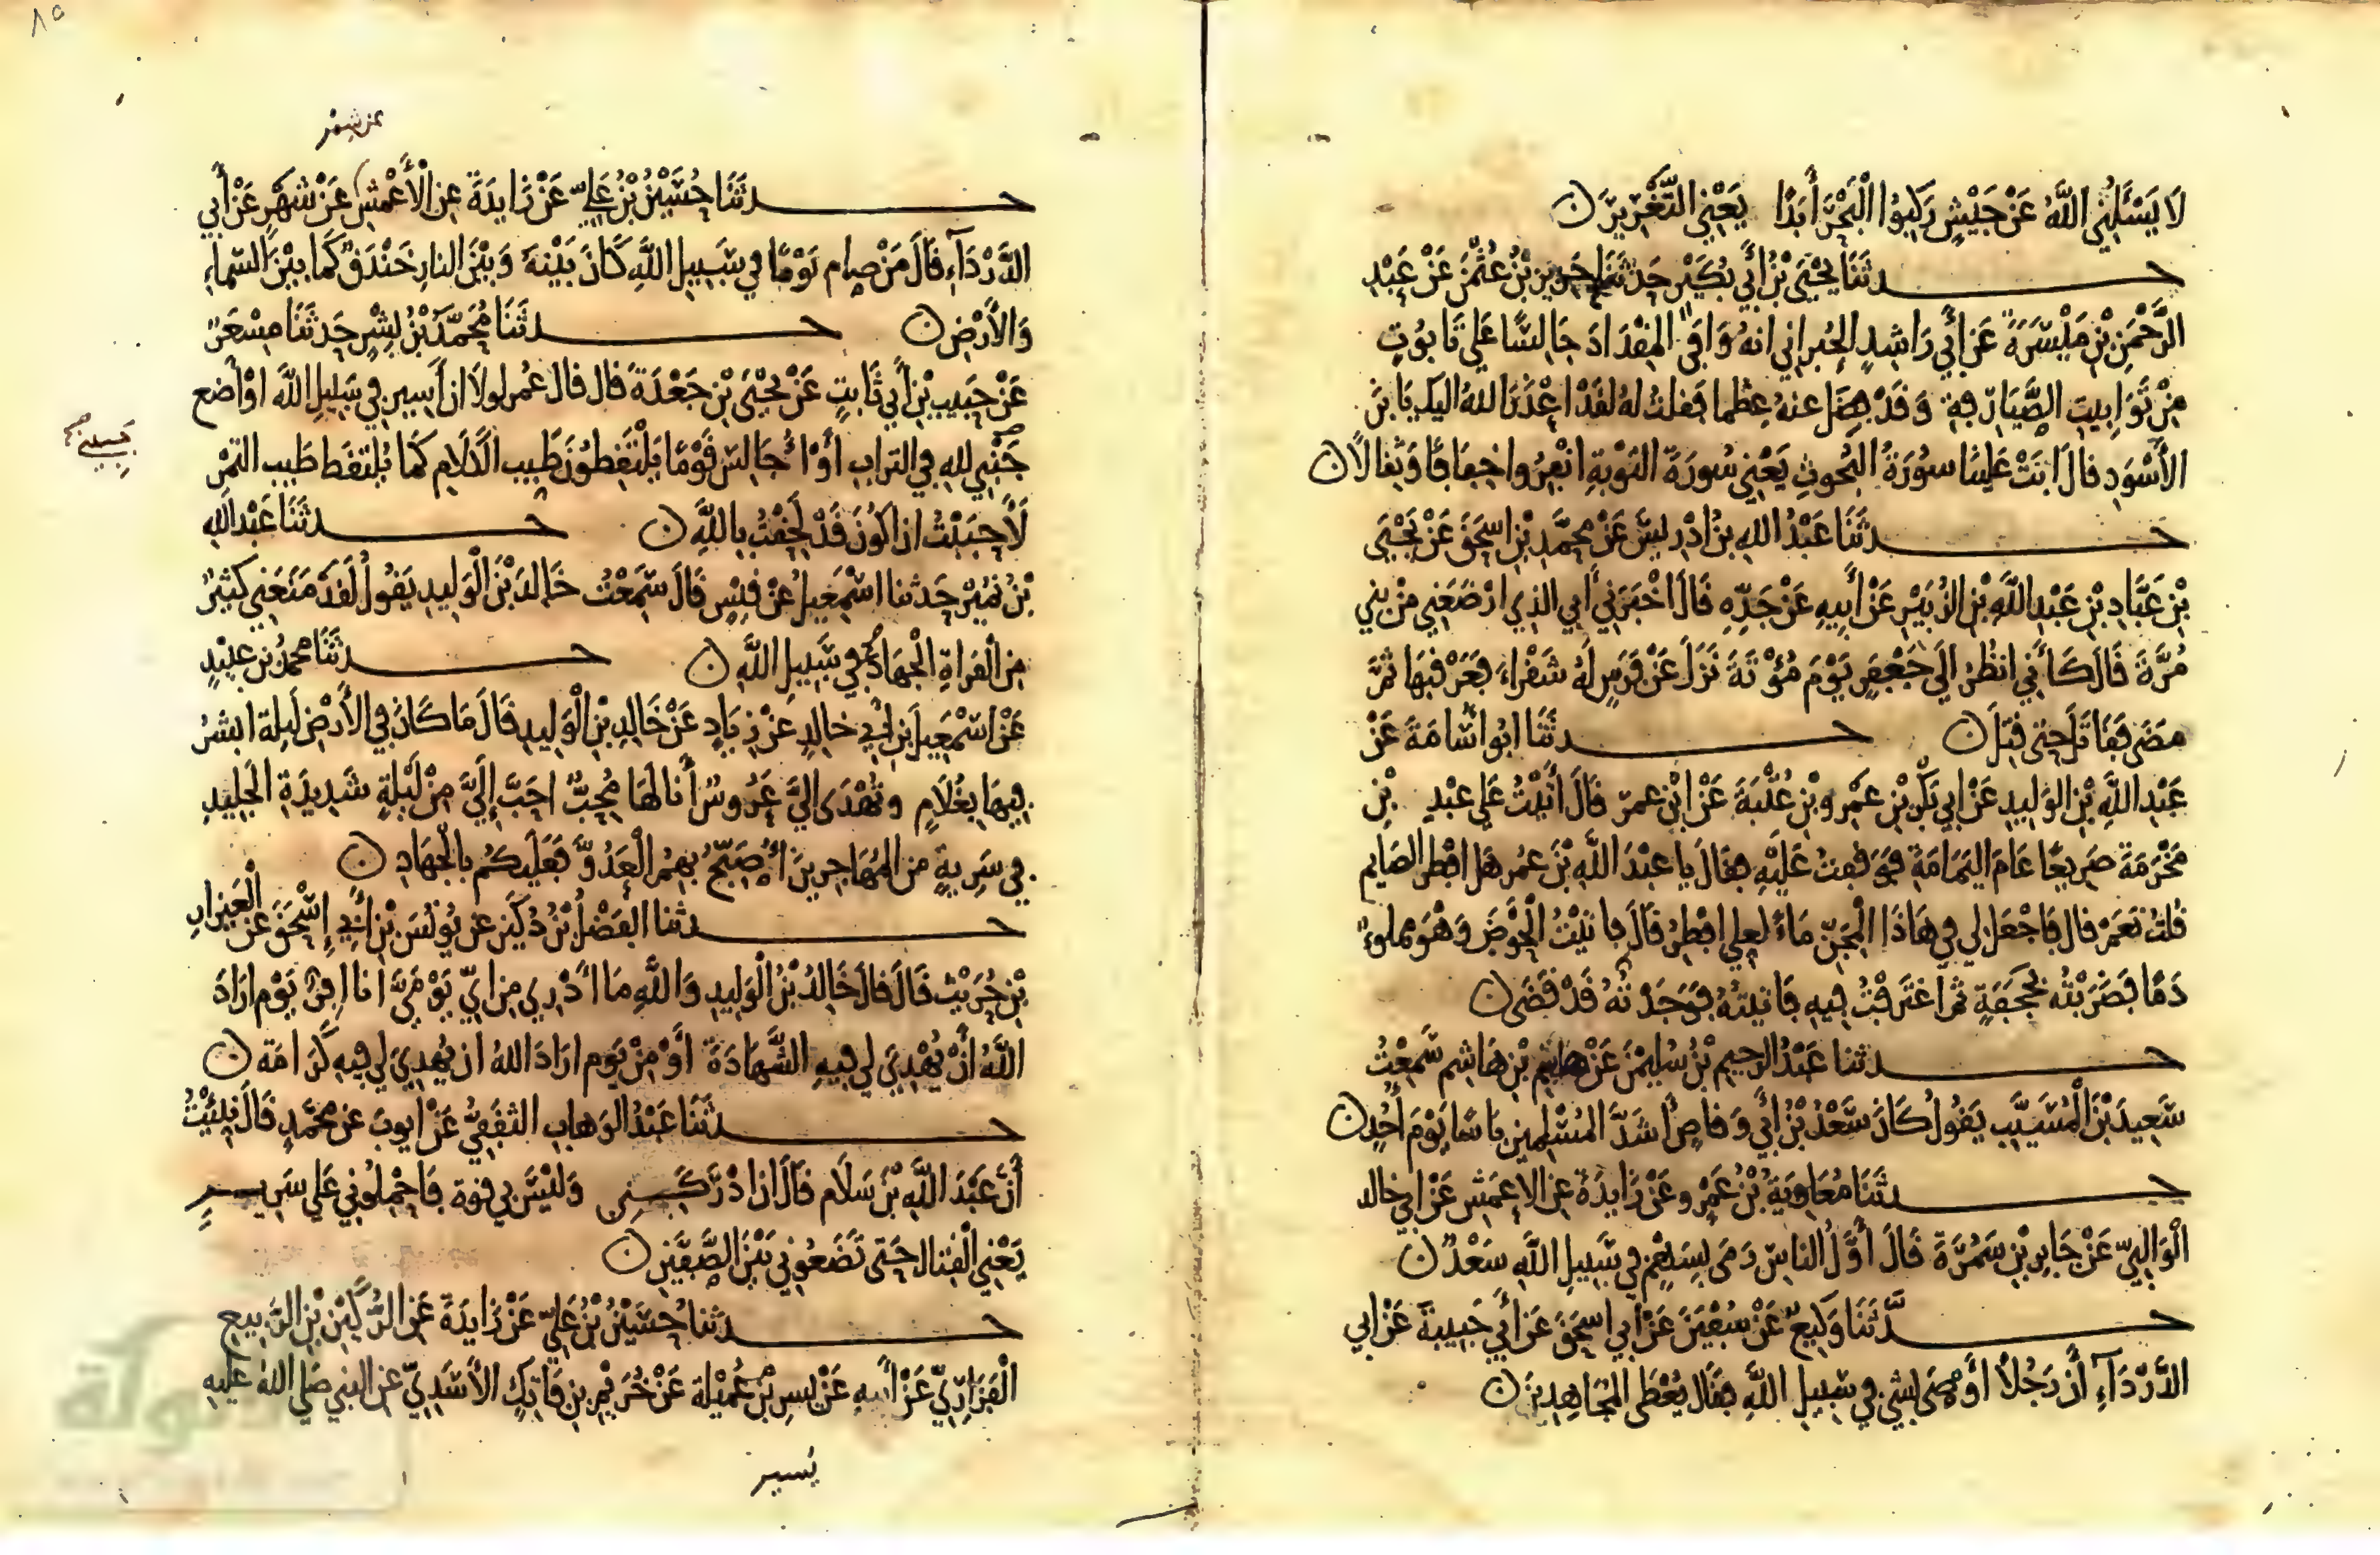 لَا يَسْئَلُنِي اللَّهُ عَنْ جَيْشٍ رَكِبُوا الْبَحْرَ أَبَدًا يَعْنِي التَّغْرِيرَ
حدثَنَا يَحْيَى بْنُ أَبِي بُكَيْرٍ حَدثَنَا حريز بْنُ عُثْمٰنَ عَنْ عَبْدِ
الرَّحْمٰنِ بْنِ مَيْسَرَةَ عَنْ أَبِي رَاشِدٍ الحُبراني انه وَافَى المِقْدَادَ جَالِسًا عَلى تَابُوتٍ
مِنْ تَوَابِيتِ الصَّيَارِفِةِ وَقَدْ فَضَلَ عنهُ عِظَما فقلت لهُ لقَدْ اعْذَرَ اللهُ اليكَ يَا بنَ
الأَسْوَدِ قالَ ابَتْ عَلينَا سورَةُ البُحوثِ يَعْني سُورَةَ التَّوْبَةِ انْفِرُوا خِفَافًا وَثِقَالًا
حدثَنَا عَبْدُ اللهِ بنُ ادْرِيسَ عَنْ محمَّدِ بْنِ اسحٰقَ عَنْ يَحْيَى
بْنِ عَبَّادِ بْنِ عَبْدِ اللَّهِ بْنِ الزُّبَيْرِ عَنْ أَبِيهِ عَنْ جَدِّهِ قَالَ اخْبَرَنِي أَبِي الذِي ارْضَعَنِي مِنْ بَنِي
مُرَّةَ قَالَ كَأَنِّي انظُرُ الَى جَعْفَرٍ يَوْمَ مُؤْتَةَ نَزَلَ عَنْ فَرَسٍ لَهُ شَقْرَاءَ فَعَرْقَبَهَا ثُمَّ
مَضَى فَقَاتَلَ حَتى قُتِلَ حدثَنَا ابُو اسَامَةَ عَنْ
عَبْدِ اللَّهِ بْنِ الوَلِيدِ عَنْ ابِي بَكْرِ بْنِ عَمْرِو بْنِ عُتْبَةَ عَنْ ابْنِ عمرَ قَالَ أَتَيْتُ عَلى عَبْدِ بْنِ
مَخْرَمَةَ صَرِيعًا عَامَ اليَمَامَةِ فَوَقَفتُ عَلَيْهِ فقَالَ يا عبْدَ اللَّهِ بْنَ عمر هَل افطَر الصَايم
قُلتُ نَعَمْ قال فَاجْعَل لي في هَاذَا الْمِجَنِّ مَاءً لعلِي افْطِرُ قَالَ فاتَيْتُ الْحَوْضَ وَهْوَ مملوءٌ
دَمًا فَضَرَبْتُه بحَجَفَةٍ ثم اغْتَرَفْتُ فِيهِ فَاتيتُهُ فَوَجَدْتُهُ قَدْ قَضَى
حدثنا عَبْدُ الرحيم بْنُ سُليمٰنَ عَنْ هاشِم بْنِ هَاشِم سَمِعْتُ
سَعِيدَ بْنَ الْمُسَيَّبِ يَقُولُ كَانَ سَعْدُ بْنُ أَبِي وَقاصٍ أَشَدَّ المُسْلِمِين بَاسًا يَوْمَ أُحُدٍ
حدثَنَا مُعَاوِيَةُ بْنُ عَمْرٍو عَنْ زَايِدَةَ عن الاعمش عَنْ ابِي خالد
الْوَالِبِيِّ عَنْ جَابِرِ بْنِ سَمُرَةَ قَالَ أَوَّلُ الناسِ رَمَى بِسَهْمٍ فِي سَبِيلِ اللَّهِ سَعْدٌ
حدَّثَنَا وَكِيعٌ عَنْ سُفيٰنَ عَنْ ابِي اسحٰقَ عَنْ أَبِي حَبِيبَةَ عَنْ ابِي
الدَّرْدَآءِ أَنَّ رَجُلًا أَوْصَى بِشَيْ فِي سَبِيلِ اللَّهِ فقَال يُعْطَى المُجَاهِدِينَ
عن شمر
حدثَنَا حُسَيْنُ بْنُ عَلِيٍّ عَنْ زَايِدَةَ عن الْأَعْمَشِ عَنْ شَهْرٍ عَنْ أَبِي
الدَّرْدَآءِ قَالَ مَنْ صام يَوْمًا فِي سَبِيلِ اللَّهِ كَانَ بَيْنهُ وَبَيْنَ النارِ خَنْدَقٌ كَمَا بيْنَ السَّمَاءِ
وَالأَرْضِ حدثَنَا مُحَمَّدُ بْنُ بِشْرٍ حَدثَنَا مِسْعَرٌ
عَنْ حَبِيبِ بْنِ أَبِي ثَابِتٍ عَنْ يَحْيَى بْنِ جَعْدَةَ قال قال عُمر لولا ان أَسِير فِي سَبِيلِ اللَّهِ اوْ أضع
جَنْبِي للهِ فِي الترابِ أَوْ اُجَالِسَ قَوْمًا يَلْتَقِطُونَ طَيِّبَ الكَلَامِ كَمَا يُلتقط طَيب التمْر
جبيني
لَأَحبَبْتُ ان اكُونَ قَدْ لَحِقْتُ بِاللَّهِ حدثَنَا عَبْدُ اللهِ
بْنُ نُمَيْرٍ حَدثنا اسْمٰعِيلُ عَنْ قيْسٍ قَالَ سَمِعْتُ خَالدَ بْنَ الْوَلِيدِ يَقُولُ لَقَدْ مَنَعَنِي كَثِيرً
مِن الْقِرَاةِ الْجِهَادُ فِي سَبِيلِ اللَّهِ حدثَنَا محمدُ بن عبيْدٍ
عَنْ اسْمٰعِيلَ بن أَبِي خالِدٍ عَنْ زِيَادٍ عَنْ خَالِدِ بْنِ الْوَلِيدِ قَالَ مَا كَانَ فِي الأَرْضِ ليلة ابشرُ
فِيهَا بغُلَامٍ وتُهْدَى الَيَّ عَرُوسٌ أَنا لَهَا مُحِبٌّ احَبَّ إِلَيَّ مِنْ لَيْلَةٍ شَدِيدَةِ الْجَلِيدِ
فِي سَرِيةٍ من المُهَاجِرِينَ أُصَبِّحُ بِهِمُ الْعَدُوَّ فَعَلَيكُم بالجِهَادِ
حدثنا الفَضْلُ بْنُ دُكَيْنٍ عن يُونُسَ بْنِ أَبِي إِسْحٰقَ عَنْ الْعَيزارِ
بْنِ حُرَيْثٍ قَالَ قالَ خَالِدُ بْنُ الْوَلِيدِ وَاللَّهِ مَا ادْرِي مِن ايِّ يَوْمَيَّ انا افِرُّ يَوْم ارَادَ
اللَّهُ أَنْ يُهْدِيَ لي فِيهِ الشَّهَادَةَ أَوْ مِنْ يَوْمٍ ارَادَ اللهُ ان يُهدِيَ لي فيهِ كَرَامَة
حدثَنَا عَبْدُ الوَهابِ الثقَفِيُّ عَنْ ايوبَ عن محمَّدٍ قَالَ نُبِئْتُ
أَنَّ عَبْدَ اللَّهِ بْنَ سَلَام قَالَ ان ادْرَكَـنـى وَلَيْسَ بي قوة فَاحْمِلُونِي عَلى سَرِيـرٍ
يَعْنِي الْقِتالَ حَتى تَضَعُونِي بَيْنَ الصَّفَّيْنِ
حدثنا حُسَيْنُ بْنُ عَلِيٍّ عَنْ زَايِدَةَ عَن الرُّكَيْنِ بْنِ الرَّبِيع
الْفَزَارِيِّ عَنْ أبيهِ عَنْ يسِرِ بْنِ عُمَيْلةَ عَنْ خُرَيْمِ بنِ فَاتِكٍ الأَسَدِيِّ عن النبي صَلى اللهُ عَلَيْهِ
يُسير